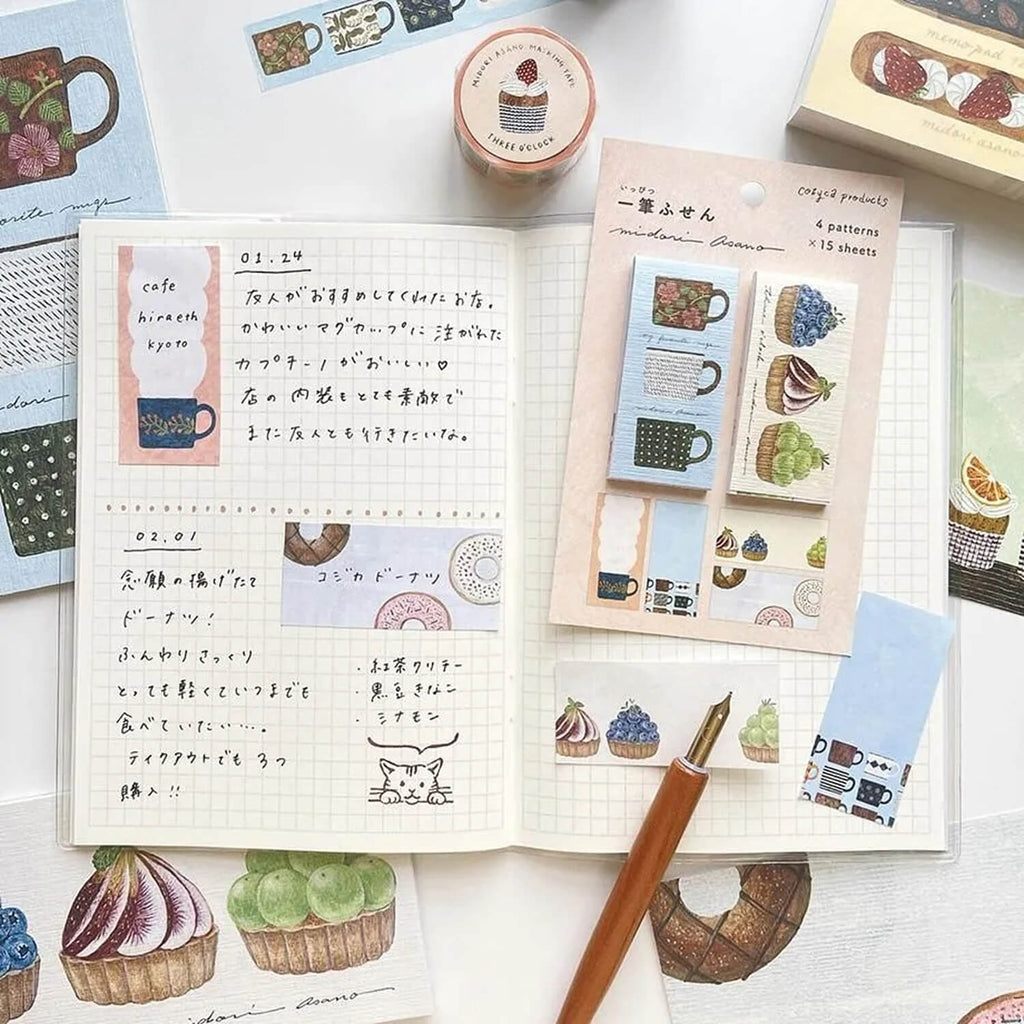 MIDORI ASANO MASKING TAPE
THREE O'CLOCK
memo pad
midori asano
orite mugs
dori
cafe
hiraeth
kyoto
01.24
友人がおすすめしてくれたお店。
かわいいマグカップに注がれた
カプチーノがおいしい♡
店の内装もとても素敵で
また友人とも行きたいな。
02.01
念願の揚げたて
ドーナツ!
ふんわりさっくり
とっても軽くていつまでも
食べていたい‥‥。
テイクアウトでも3つ
購入!!
コジカドーナツ
・紅茶クリテー
・黒豆きなこ
・シナモン
いっぴつ
一筆ふせん
midori asano
cozyca products
4 patterns
×15 sheets
my favorite mugs
midori asano
midori asano